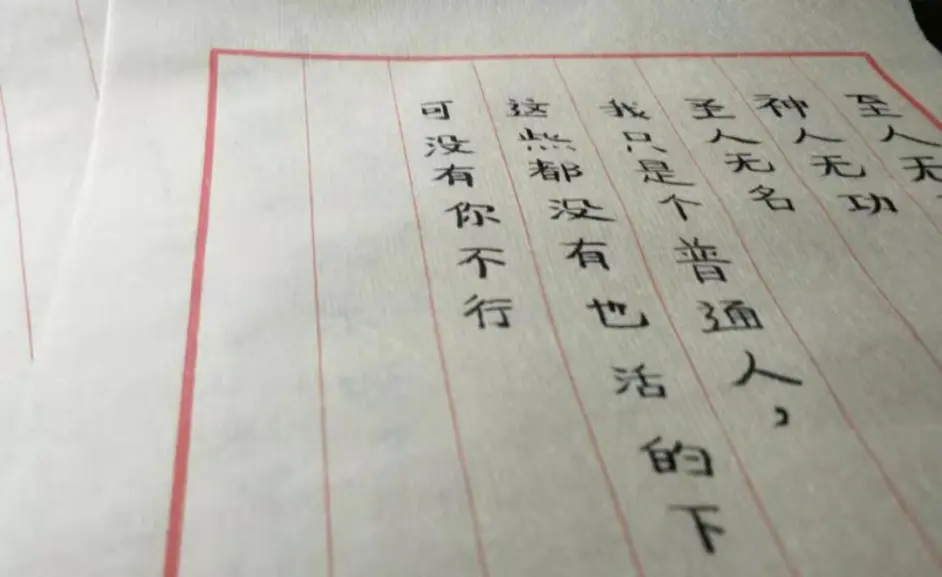 至人无
神人无功
圣人无名
我只是个普通人，
这些都没有也活的下
可没有你不行